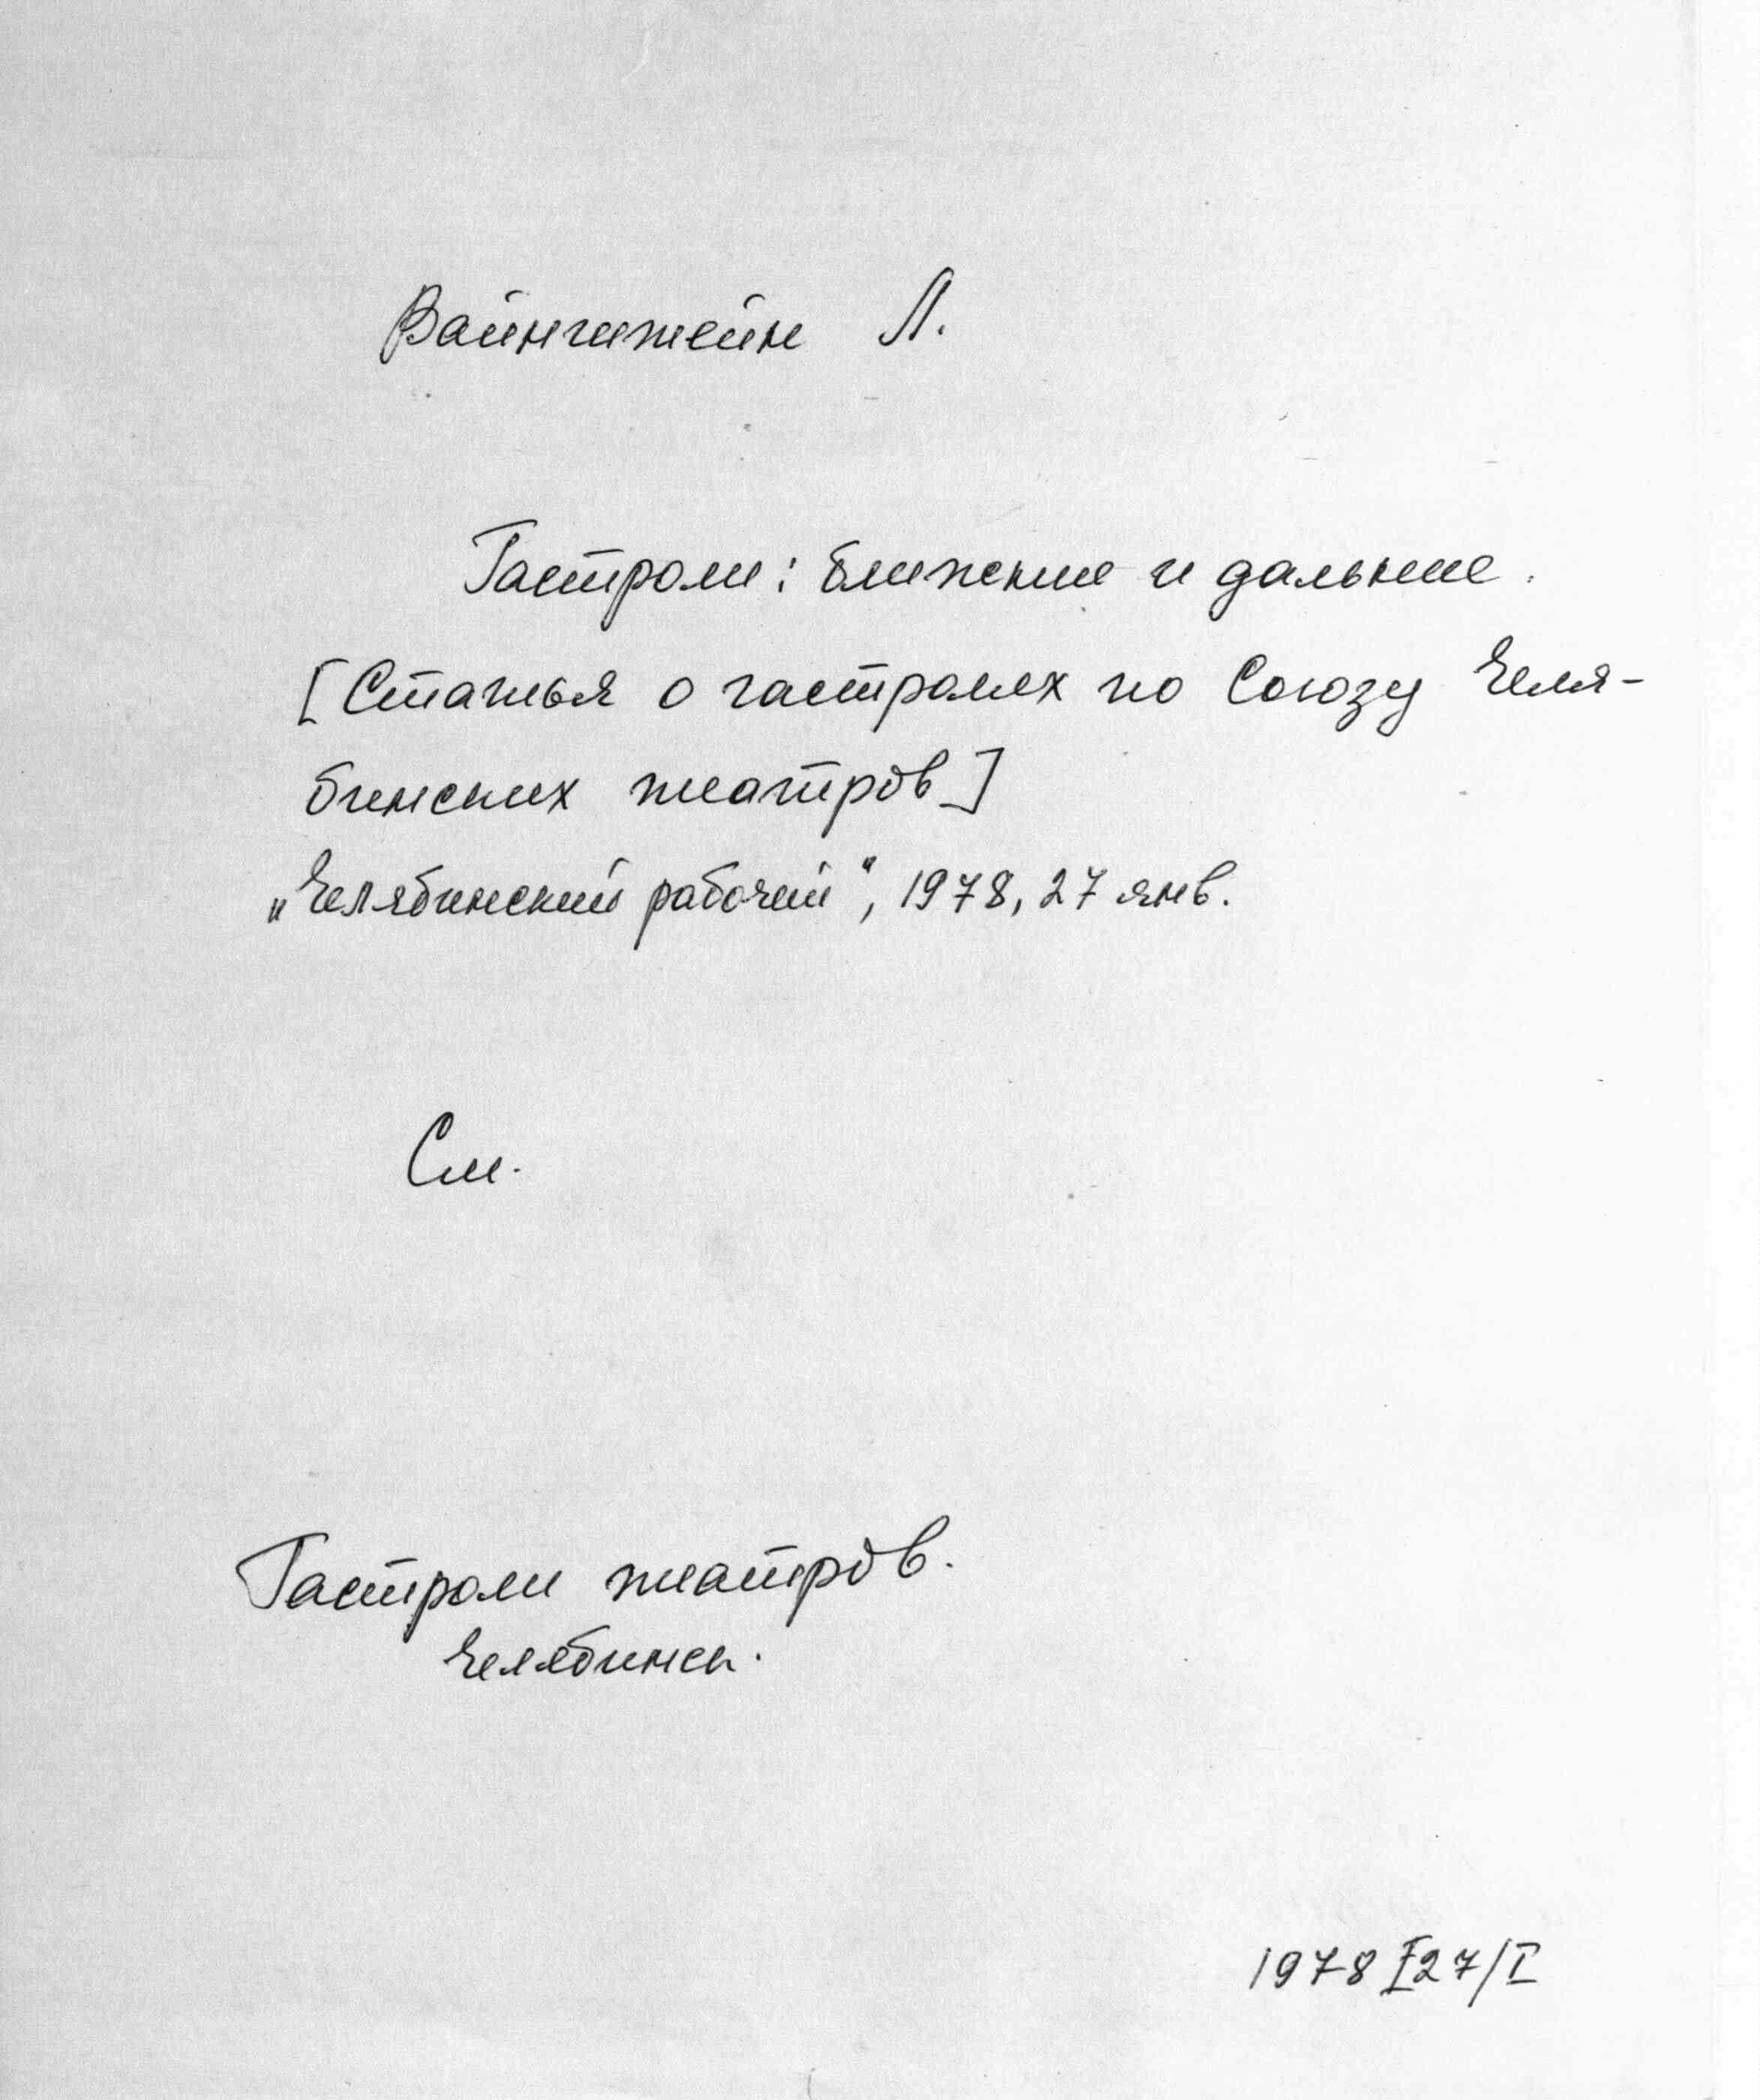 Вайнштейн Л.
Гастроли: ближние и дальние.
[Статья о гастролях по Союзу Челя-
бинских театров]
„Челябинский рабочий“, 1978, 27 янв.
См.
Гастроли театров.
Челябинск.
1978 I 27/I